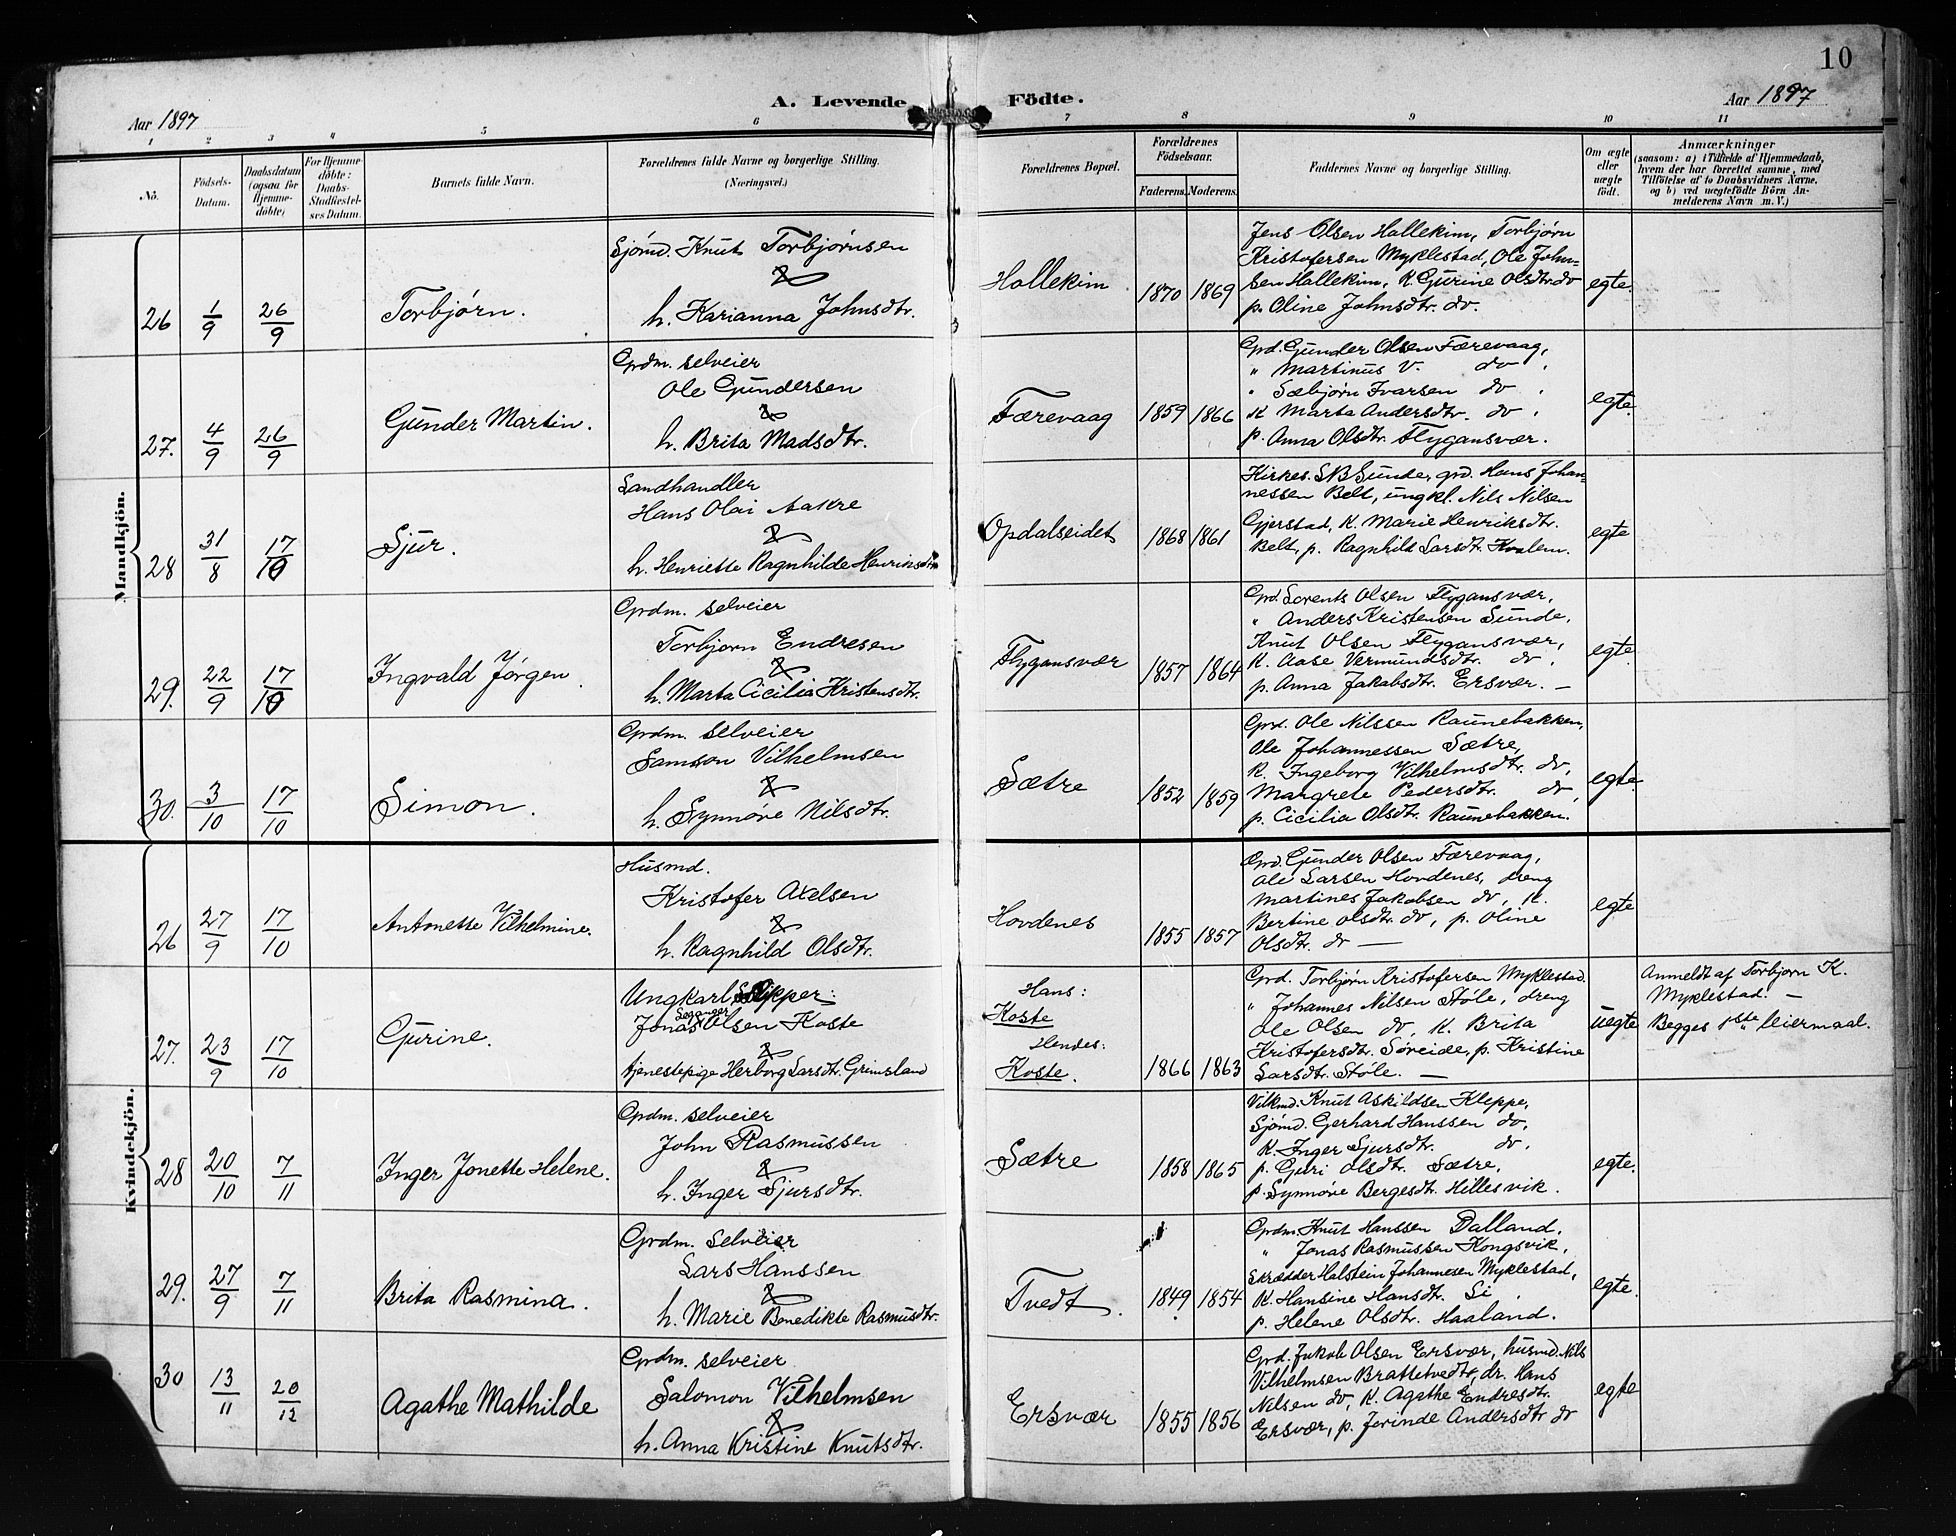 10
A. Levende Födte.
Aar 1897
Aar 1897
1 2 3 4 5 6 7 8 9 10 11
No.
Födsels-
Datum.
Daabsdatum
(ogsaa for
Hjemme-
döbte)
For Hjemme-
döbte:
Daabs-
Stadfæstel-
ses Datum.
Barnets fulde Navn.
Forældrenes fulde Navne og borgerlige Stilling.
(Næringsvei.)
Forældrenes Bopæl.
Forældrenes
Födselsaar.
Faderens. Moderens.
Faddernes Navne og borgerlige Stilling.
Om ægte
eller
uægte
födt.
Anmærkninger
(saasom: a) i Tilfælde af Hjemmedaab,
hvem der har forrettet samme, med
Tilföielse af to Daabsvidners Navne,
og b) ved uægtefödte Börn An-
melderens Navn m. V.)
Mandkjön.
26
1/9
26/9
Torbjørn.
Sjømd. Knut Torbjørnsen
&
h. Karianna Johnsdtr.
Hallekim
1870 1869
Jens Olsen Hallekim, Torbjørn
Kristofersen Myklestad, Ole John-
sen Hallekim, K. Gurine Olsdtr. do
p. Oline Johnsdtr. do.
egte.
27.
4/9
26/9
Gunder Martin.
Grdm. selveier
Ole Gundersen
&
h. Brita Madsdtr.
Færevaag
1859 1866
Grd. Gunder Olsen Færevaag,
" Martinus V. do,
" Sæbjørn Ivarsen do,
K Marta Andersdtr. do,
p. Anna Olsdtr. Flygansvær.
egte.
28
31/8
17/10
Sjur.
Landhandler
Hans Olai Aakre
&
h. Henriette Ragnhilde Henriksdtr
Opdalseidet
1868 1861
Kirkes. SB Sunde, grd. Hans Johan-
nessen Belt, ungkl. Nils Nilsen
Gjerstad, K. Marie Henriksdtr.
Belt, p. Ragnhild Larsdtr. Kvalem.
egte
29.
22/9
17/10
Ingvald Jørgen.
Grdm. selveier
Torbjorn Endresen
&
h. Marta Cicilia Kristensdtr.
Flygansvær
1857 1864
Grd. Lorents Olsen Flygansvær,
" Anders Kristensen Sunde,
Knut Olsen Flygansvær,
K. Aase Vermundsdtr. do,
p. Anna Jakabsdtr. Ersvær. —
egte.
30.
3/10
17/10
Simon.
Grdm. selveier
Samson Vilhelmsen
&
h. Synnøve Nilsdtr.
Sætre
1852 1859
Grd. Ole Nilssen Raunebakken,
Ole Johannessen Sætre,
K. Ingeborg Vilhelmsdtr. do,
Margrete Pedersdtr. do,
p. Cicilia Olsdtr. Raunebakken.
egte.
Kvindekjön.
26
27/9
17/10
Antonette Vilhelmine.
Husmd.
Kristofer Axelsen
&
h. Ragnhild Olsdtr.
Hovdenes
1855 1857
Grd. Gunder Olsen Færevaag,
Ole Larsen Hovdenes, dreng
Martines Jakobsen do, K.
Bertine Olsdtr. do, p. Oline
Olsdtr. do —
egte
27.
23/9
17/10
Gurine.
Ungkarl Skipper:
Jonas Olsen Koste
&
tjenestepige Herborg Larsdtr. Grimsland
Hans:
Koste
Hendes:
Koste.
1866 1863
Grd. Torbjørn Kristofersen Myklestad.
" Johannes Nilsen Støle, dreng
Ole Olsen do, K. Brita
Kristofersdtr. Søreide, p. Kristine
Larsdtr. Støle. —
uegte
Anmeldt af Torbjorn K.
Myklestad. —
Begges 1ste leiermaal.
28
20/10
7/11
Inger Jonette Helene.
Grdm. selveier
John Rasmussen
&
h. Inger Sjursdtr.
Sætre
1858 1865
Vilkmd. Knut Askildsen Kleppe,
Sjømd. Gerhard Hanssen do,
K. Inger Sjursdtr. do.
p. Guri Olsdtr. Sætre,
p. Synnøve Bergesdtr. Hillesvik.
egte.
29.
27/9
7/11
Brita Rasmina.
Grdm. selveier
Lars Hanssen
&
h. Marie Benedikte Rasmusdtr.
Tvedt.
1849 1854
Grdm. Knut Hanssen Dalland,
" Jonas Rasmussen Kongsvik,
Skrædder Halstein Johannesen Myklestad,
K. Hansine Hansdtr. Li,
p. Helene Olsdtr. Haaland.
egte.
30
13/11
20/12
Agathe Mathilde
Grdm. selveier
Salomon Vilhelmsen
&
h. Anna Kristine Knutsdtr.
Ersvær
1855 1856
Grd. Jakob Olsen Ersvær, husmd. Nils
Vilhelmsen Brattetvedt, dr. Hans
Nilsen do, K. Agathe Endresdtr.
Ersvær, p. Jorinde Andersdtr do
egte